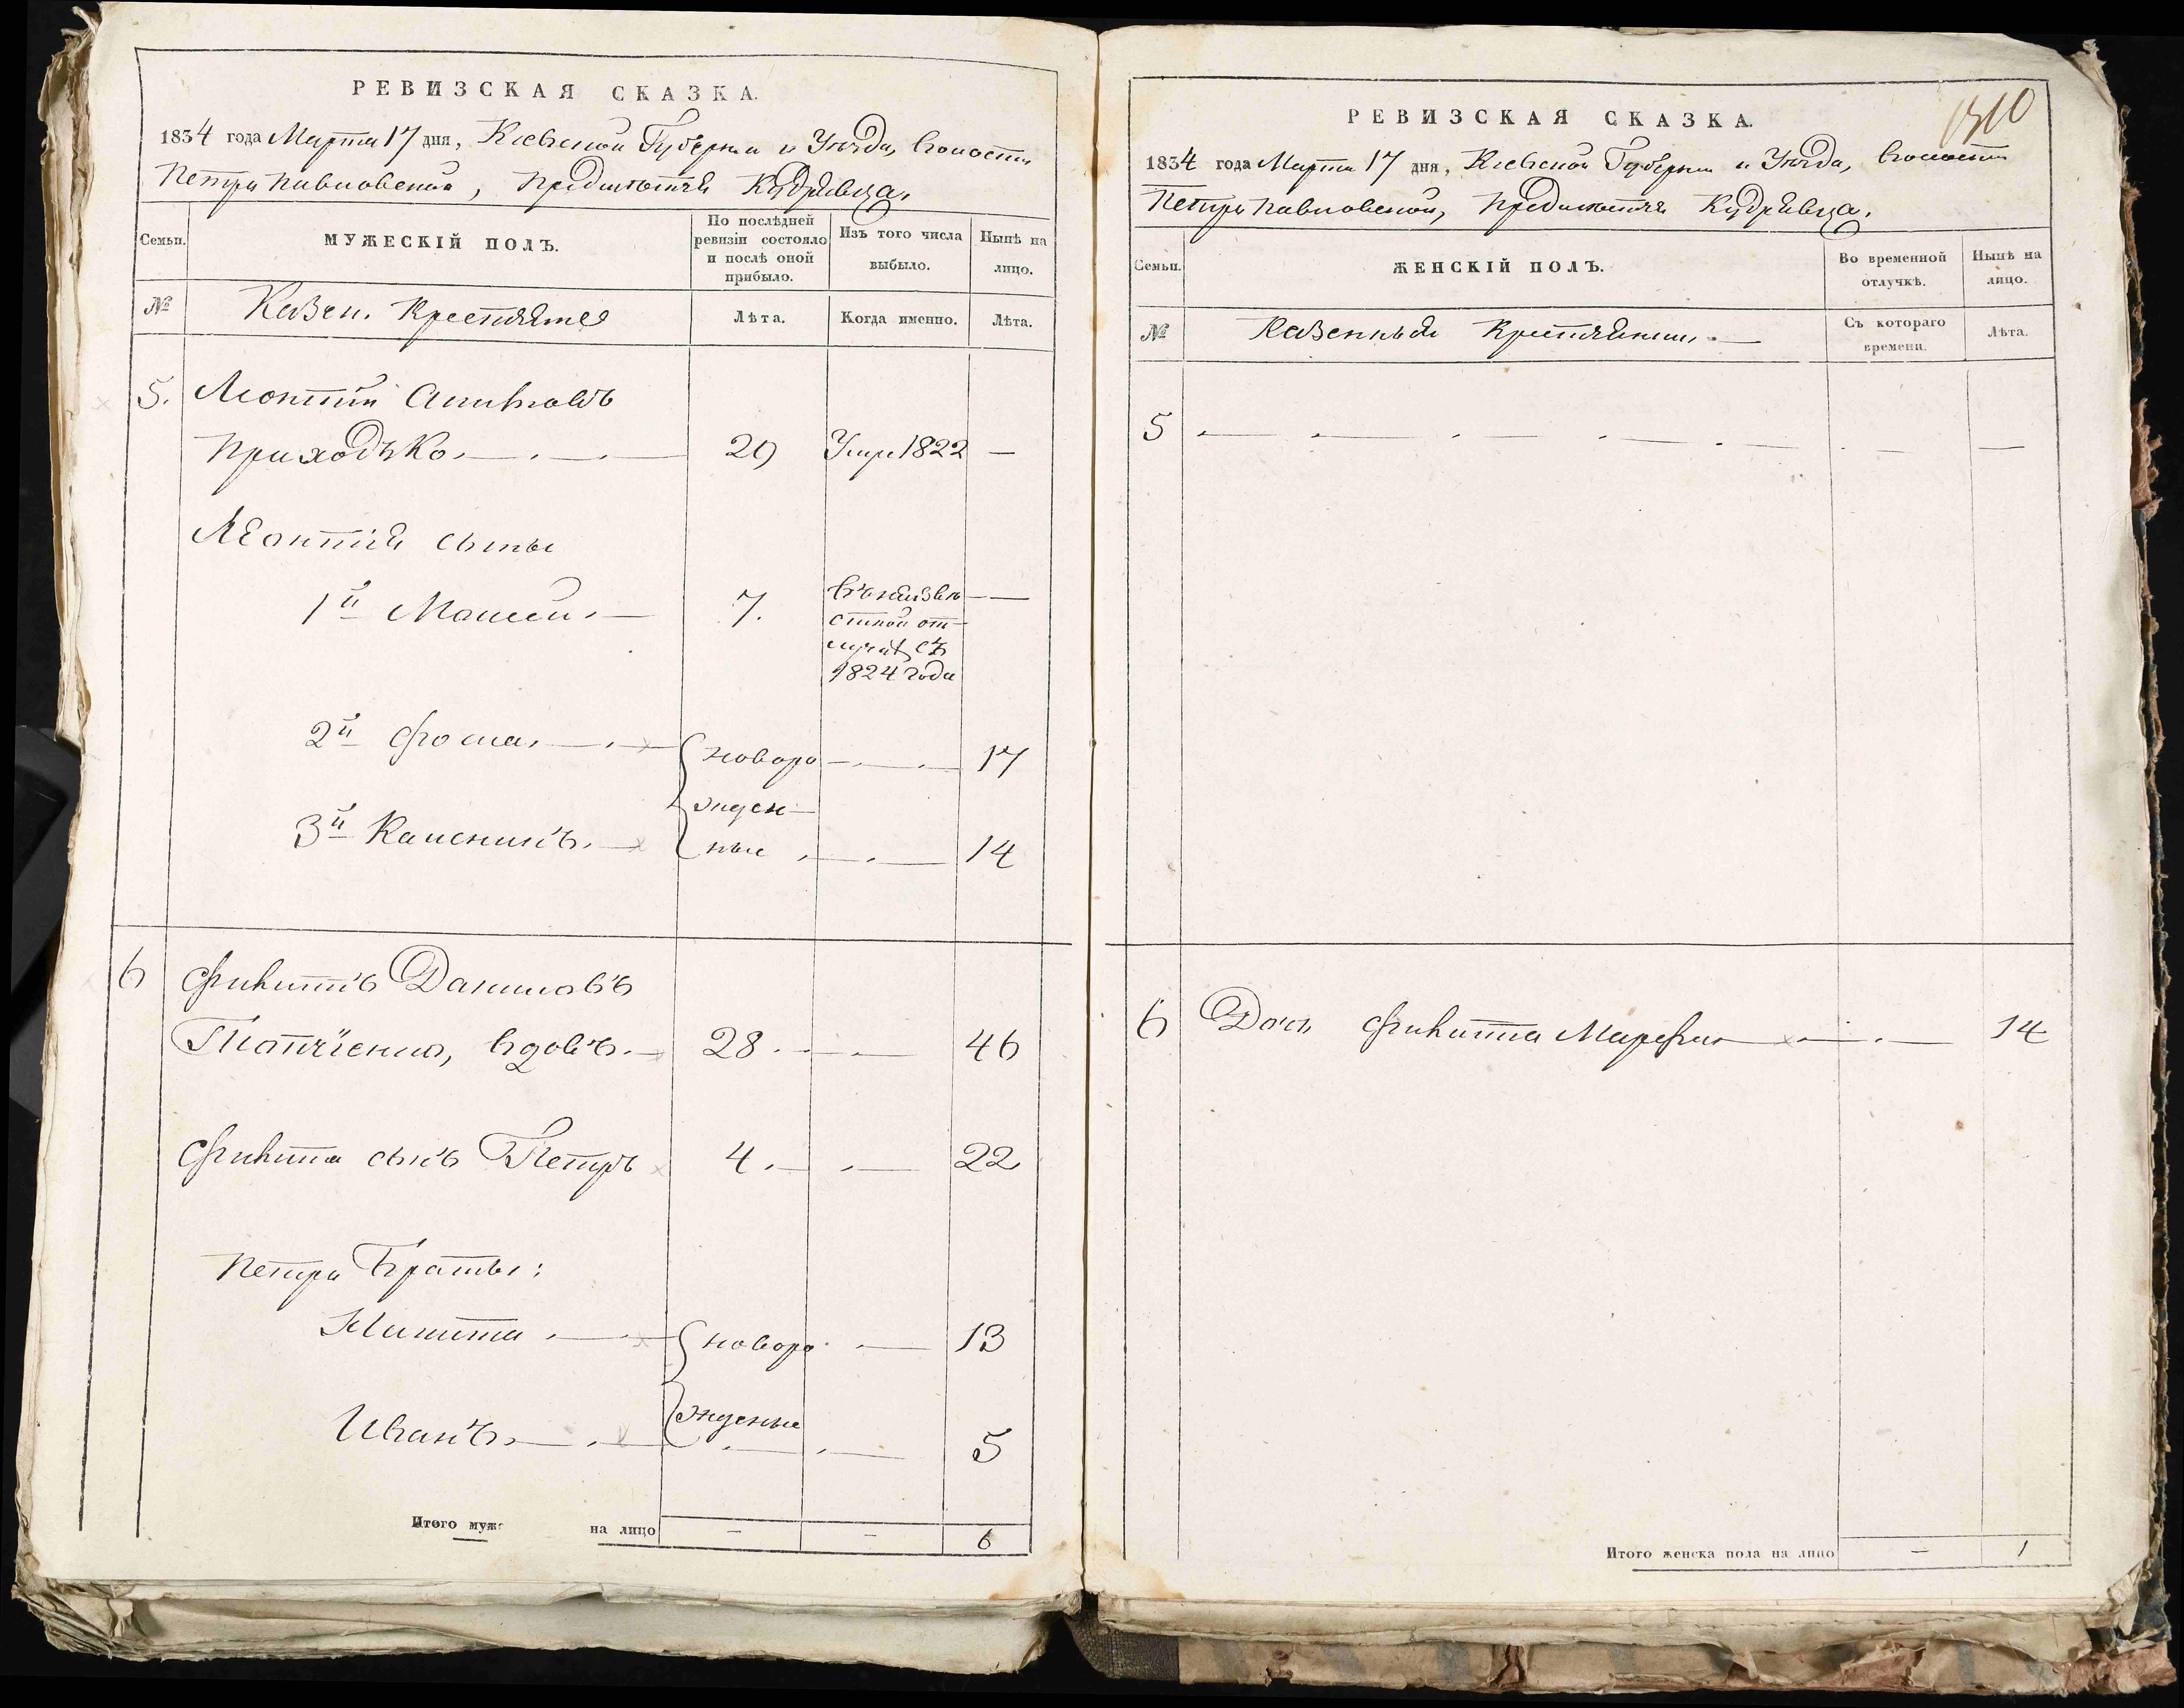 РЕВИЗСКАЯ СКАЗКА.
1834 года Марта 17 дня, Кіевской Губерніи и Уѣзда, волости
Петропавловской, предмѣстія Кудрявца.
Семьи.
МУЖЕСКІЙ ПОЛЪ.
По послѣдней
ревизіи состояло
и послѣ оной
прибыло.
Изъ того числа
выбыло.
Нынѣ на
лицо.
№
Казен. Крестьяне
Лѣта.
Когда именно.
Лѣта.
5. Леонтій
Приходько. 29 Умре 1822 —
Леонтія сыны
1й Моисей. 7. въ неизвѣ —
стной от-
лучкѣ съ
1824 года
2й Фома. новоро 17
жден-
3й Каленикъ. ные 14
6 Фикитъ Даниловъ
вдовъ. 28. 46
Фикита сынъ Петръ 4. 22
Петра Братья:
Никита новоро 13
жденые
Иванъ 5
Итого муж на лицо — — 6
1310
РЕВИЗСКАЯ СКАЗКА.
1834 года Марта 17 дня, Кіевской Губерніи и Уѣзда, волости
Петропавловской, предмѣстія Кудрявца.
Семьи.
ЖЕНСКІЙ ПОЛЪ.
Во временной
отлучкѣ.
Нынѣ на
лицо.
№
Казенныя Крестьянки.
Съ котораго
времени.
Лѣта.
5 — — — — — — —
6 Дочь Фикита Марфа 14
Итого женска пола на лицо — 1